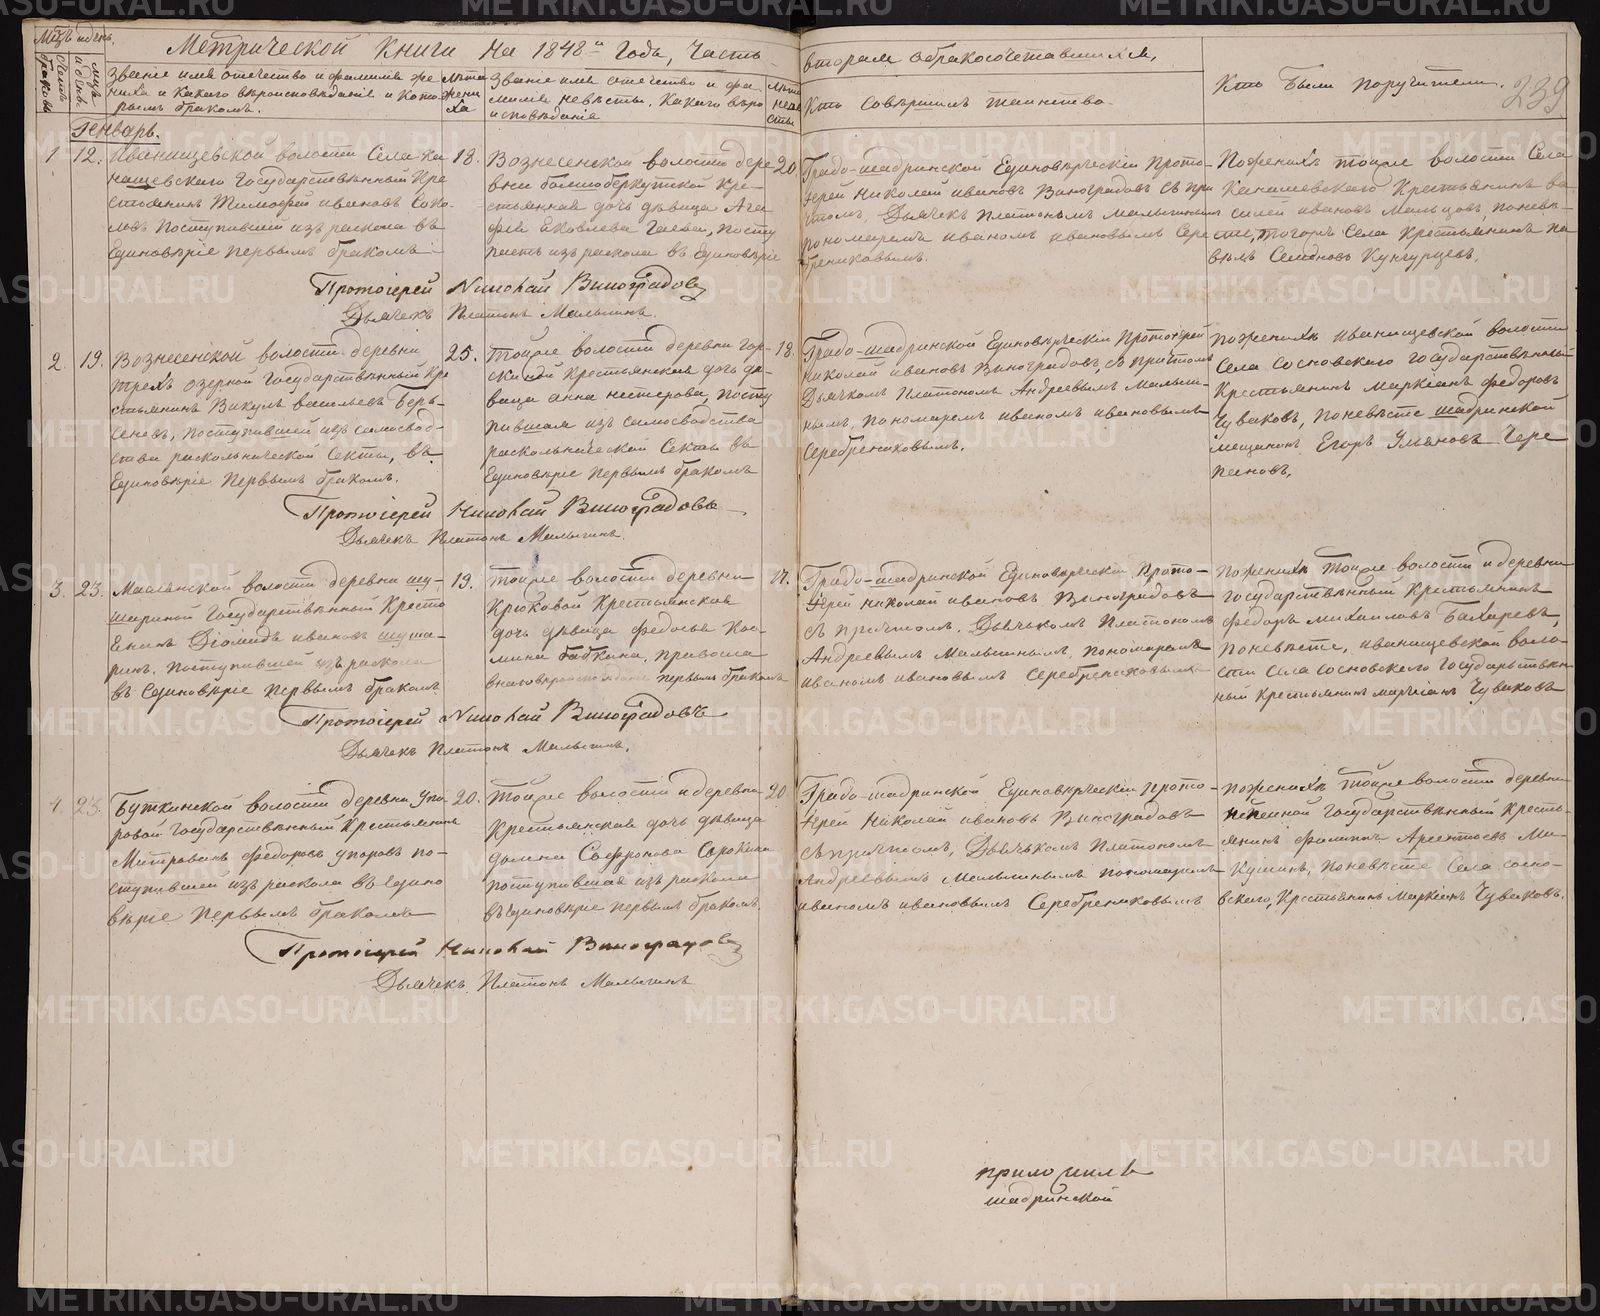 Метрической Книги На 1848й Годъ, Часть
вторая о бракосочетавшихся,
239
Званіе имя отечество и фамилія же
ниха и какого вѣроисповѣданія и кото
рымъ бракомъ.
Лѣта
жени
ха
Званіе имя отечество и фа
милія невѣсты. Какого вѣро
исповѣданія
Лѣта
неве
сты
Кто совершилъ таинство.
Кто были поручители.
Генварь.
1
12.
Иванищевской волости Села Ка
нашевскаго Государственный Кре
стьянинъ Тимофей ивановъ Соко
ловъ поступившій изъ раскола въ
Единовѣріе первымъ бракомъ
18.
Вознесенской волости дере
вни большобѣркутской кре-
стьянская дочь дѣвица Ага
фья Яковлева Гаева, посту
паетъ изъ раскола въ Единовѣріе
20
Градо-шадринской Единовѣрческій Прото-
іерей Николай ивановъ Виноградовъ съ при
чтомъ, Дьячекъ Платономъ Малыгинымъ
пономаремъ иваномъ ивановымъ Сере
брениковымъ.
По женихѣ тойже волости Села
Канашевскаго Крестьянинъ ва
силей ивановъ Мальцовъ, по невѣ-
сте, тогожъ Села Крестьянинъ па
велъ Семеновъ Кунгурцевъ.
Протоіерей Николай Виноградовъ
Дьячекъ Платонъ Малыгинъ.
2.
19.
Вознесенской волости деревни
трехъ озерной Государственный Кре
стьянинъ Викулъ васильевъ Бер-
сеневъ, поступившей изъ самосвод-
ства раскольнической Секты, въ
Единовѣріе первымъ бракомъ.
25.
тойже волости деревни гор-
скиной Крестьянская дочь дѣ-
вица анна нестерова, посту
пившая изъ самосводства
раскольнической Секты въ
Единовѣріе первымъ бракомъ
18.
Градо-шадринской Единовѣрческій Протоіерей
Николай ивановъ Виноградовъ, съ причтомъ
Дьячкомъ Платономъ Андреевымъ Малыги-
нымъ, пономаремъ иваномъ ивановымъ
Серебрениковымъ.
по женихѣ иванищевской волости
Села Сосновскаго Государственный
Крестьянинъ Маркіанъ федоровъ
Чуваковъ, по невѣсте шадринской
мещанинъ Егоръ Ульяновъ Чере
пановъ.
Протоіерей Николай Виноградовъ
Дьячекъ Платонъ Малыгинъ.
3.
23.
Маслянской волости деревни шу-
шариной Государственный Кресть
янинъ Діомидъ ивановъ шуша-
ринъ, поступившей изъ раскола
въ Единовѣріе первымъ бракомъ
19.
тойже волости деревни
Крюковой Крестьянская
дочь дѣвица федосья Кос-
мина бабкина, правосла
внаго вѣроисповѣданія первымъ бракомъ
17.
Градо-шадринской Единоверческій Прото-
іерей Николай ивановъ Виноградовъ
съ причтомъ. Дьячькомъ Платономъ
Андреевымъ Малыгинымъ, пономаремъ
иваномъ ивановымъ Серебрениковымъ
По женихѣ тойже волости и деревни
Государственный Крестьянинъ
федоръ михаиловъ Бахаревъ,
по невѣсте, иванищевской воло-
сти Села Сосновскаго Государствен
ный Крестьянинъ маркіанъ Чуваковъ
Протоіерей Николай Виноградовъ
Дьячекъ Платонъ Малыгинъ.
4.
23.
Буткинской волости деревни упо-
ровой Государственный Крестьянинъ
Митрофанъ федоровъ упоровъ по-
ступившей изъ раскола въ едино
вѣріе первымъ бракомъ
20.
Тойже волости и деревни
Крестьянская дочь дѣвица
домна Сафронова Сорокина
поступившая изъ раскола
въ Единовѣріе первымъ бракомъ.
20
Градо-шадринской Единовѣрческій Прото
іерей Николай ивановъ Виноградовъ
съ причтомъ, Дьячькомъ Платономъ
Андреевымъ Малыгинымъ пономаремъ
иваномъ ивановымъ Серебрениковымъ
по женихѣ тойже волости деревни
Государственный Кресть-
янинъ филипъ Арсентьевъ Ми-
кушинъ, по невѣсте Села сосно-
вскаго, Крестьянинъ Маркіанъ Чуваковъ.
Протоіерей Николай Виноградовъ
Дьячекъ Платонъ Малыгинъ
приложилъ
шадринской